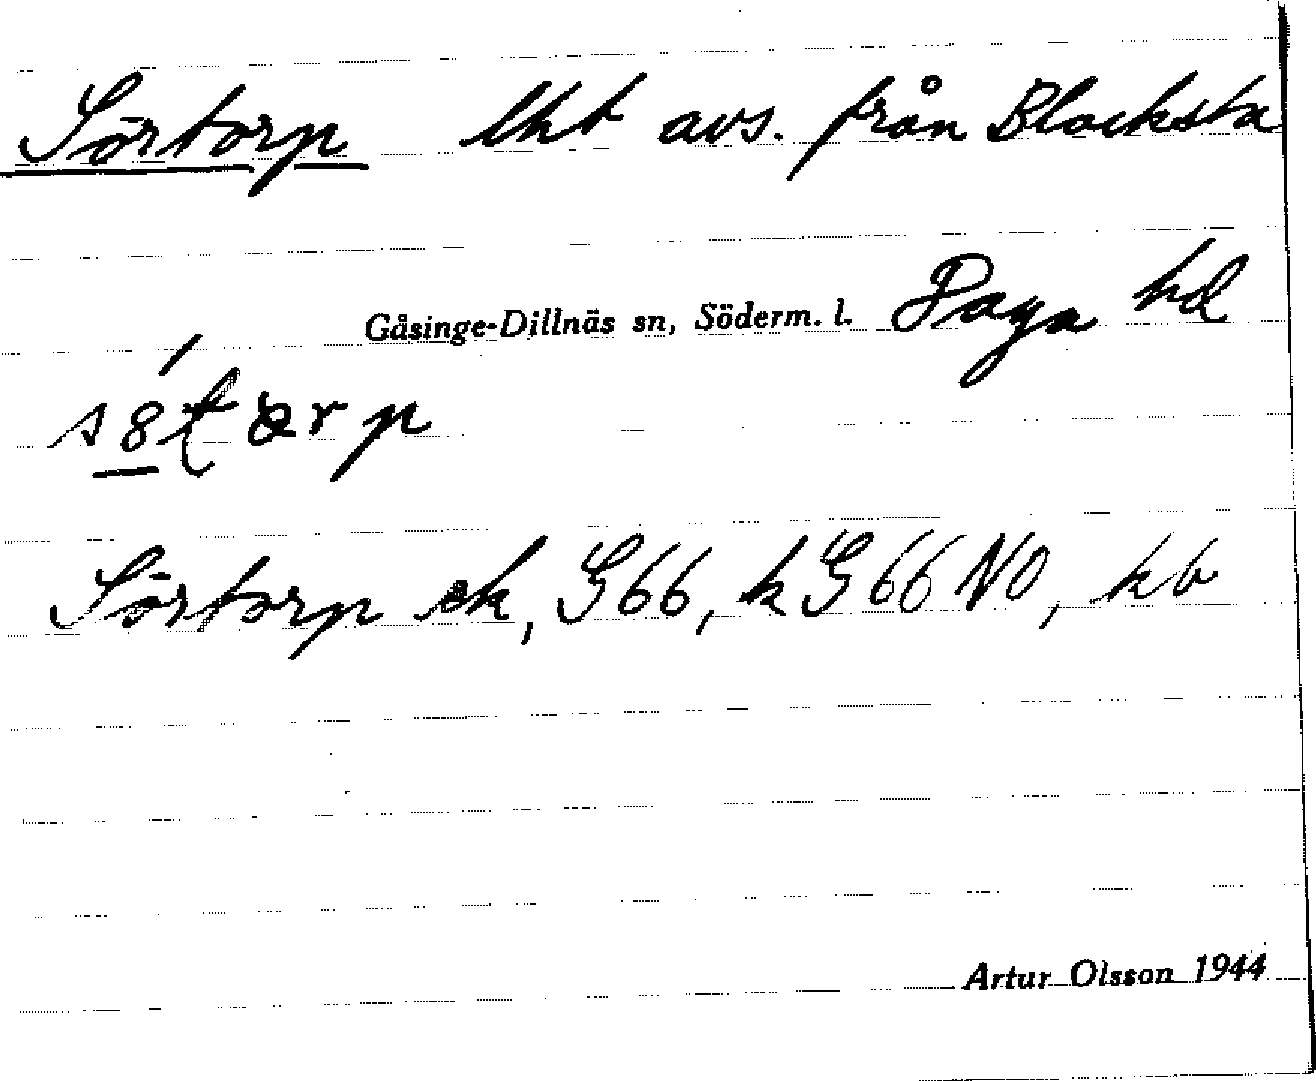 Sörtorp lht avs. från Blacksta
Gåsinge-Dillnäs sn, Söderm. l. Daga hd
s8́tærp
Sörtorp ek, G66, k G66 NO, kb
Artur Olsson 1944